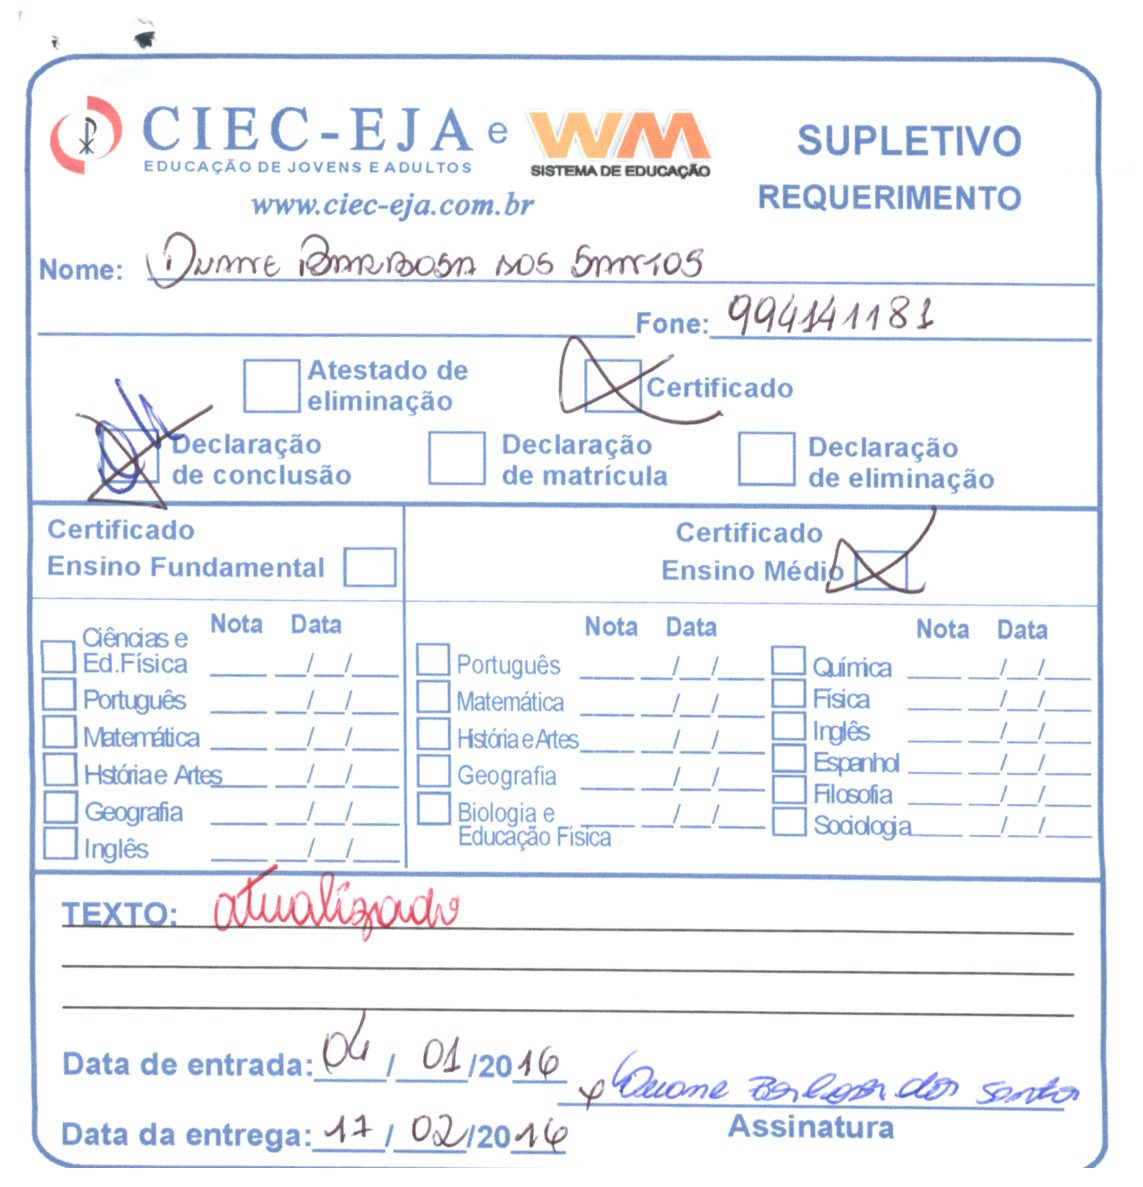 CIEC-EJA e WM
EDUCAÇÃO DE JOVENS E ADULTOS
SISTEMA DE EDUCAÇÃO
www.ciec-eja.com.br
SUPLETIVO
REQUERIMENTO
Nome: Duane Barbosa dos Santos
Fone: 994141181
Atestado de
eliminação
Certificado
ok
Declaração
de conclusão
Declaração
de matrícula
Declaração
de eliminação
Certificado
Ensino Fundamental
Nota Data
Ciências e
Ed.Física ____ __/__/__
Português ____ __/__/__
Matemática ____ __/__/__
História e Artes ____ __/__/__
Geografia ____ __/__/__
Inglês ____ __/__/__
Certificado
Ensino Médio
Nota Data
Português ____ __/__/__
Matemática ____ __/__/__
História e Artes ____ __/__/__
Geografia ____ __/__/__
Biologia e ____ __/__/__
Educação Física
Nota Data
Química ____ __/__/__
Física ____ __/__/__
Inglês ____ __/__/__
Espanhol ____ __/__/__
Filosofia ____ __/__/__
Sociologia ____ __/__/__
TEXTO: atualizado
Data de entrada: 04/01/2016
Data da entrega: 17/02/2016
x Duane Barbosa dos Santos
Assinatura